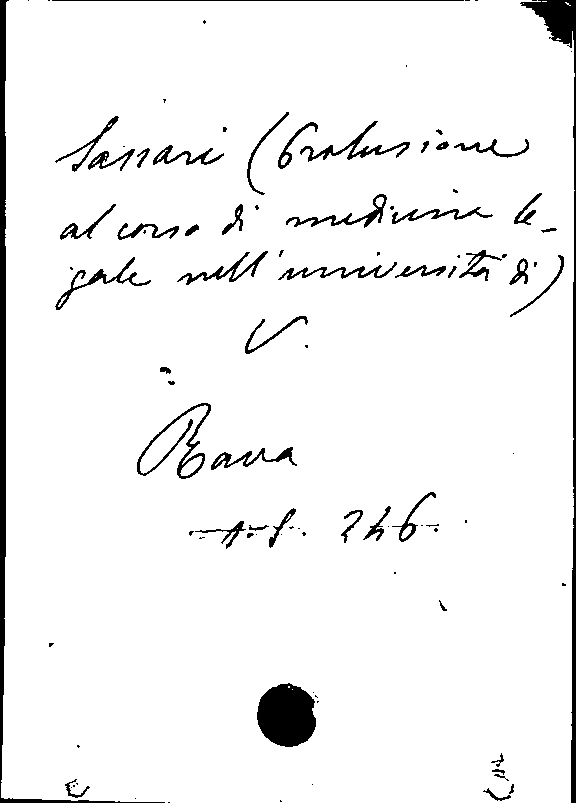 Sassari (Prolusione
al corso di medicina le-
gale nell'università di)
V.
Rava
A.S. 246.